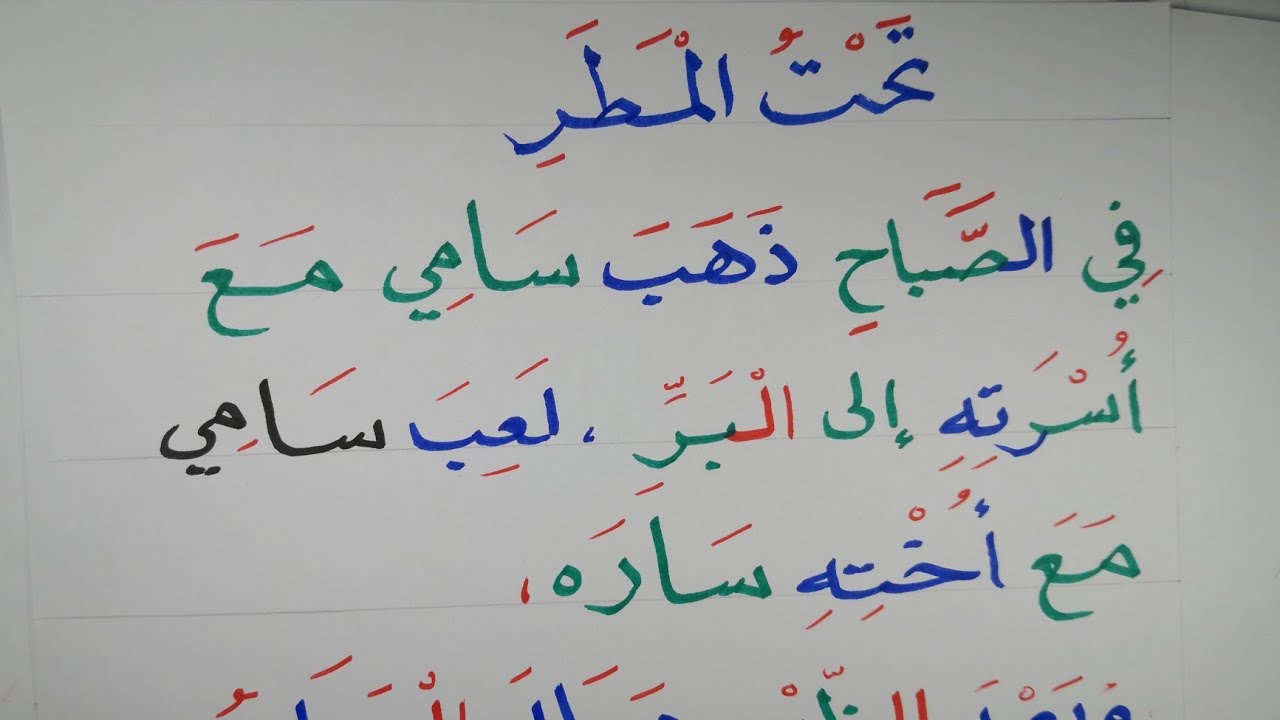 تَحْتُ الْمَطَرِ
فِي الصَّبَاحِ ذَهَبَ سَامِي مَعَ
أُسْرَتِهِ إلى الْبَرِّ ، لَعِبَ سَامِي
مَعَ أُخْتِهِ سَارَه ،